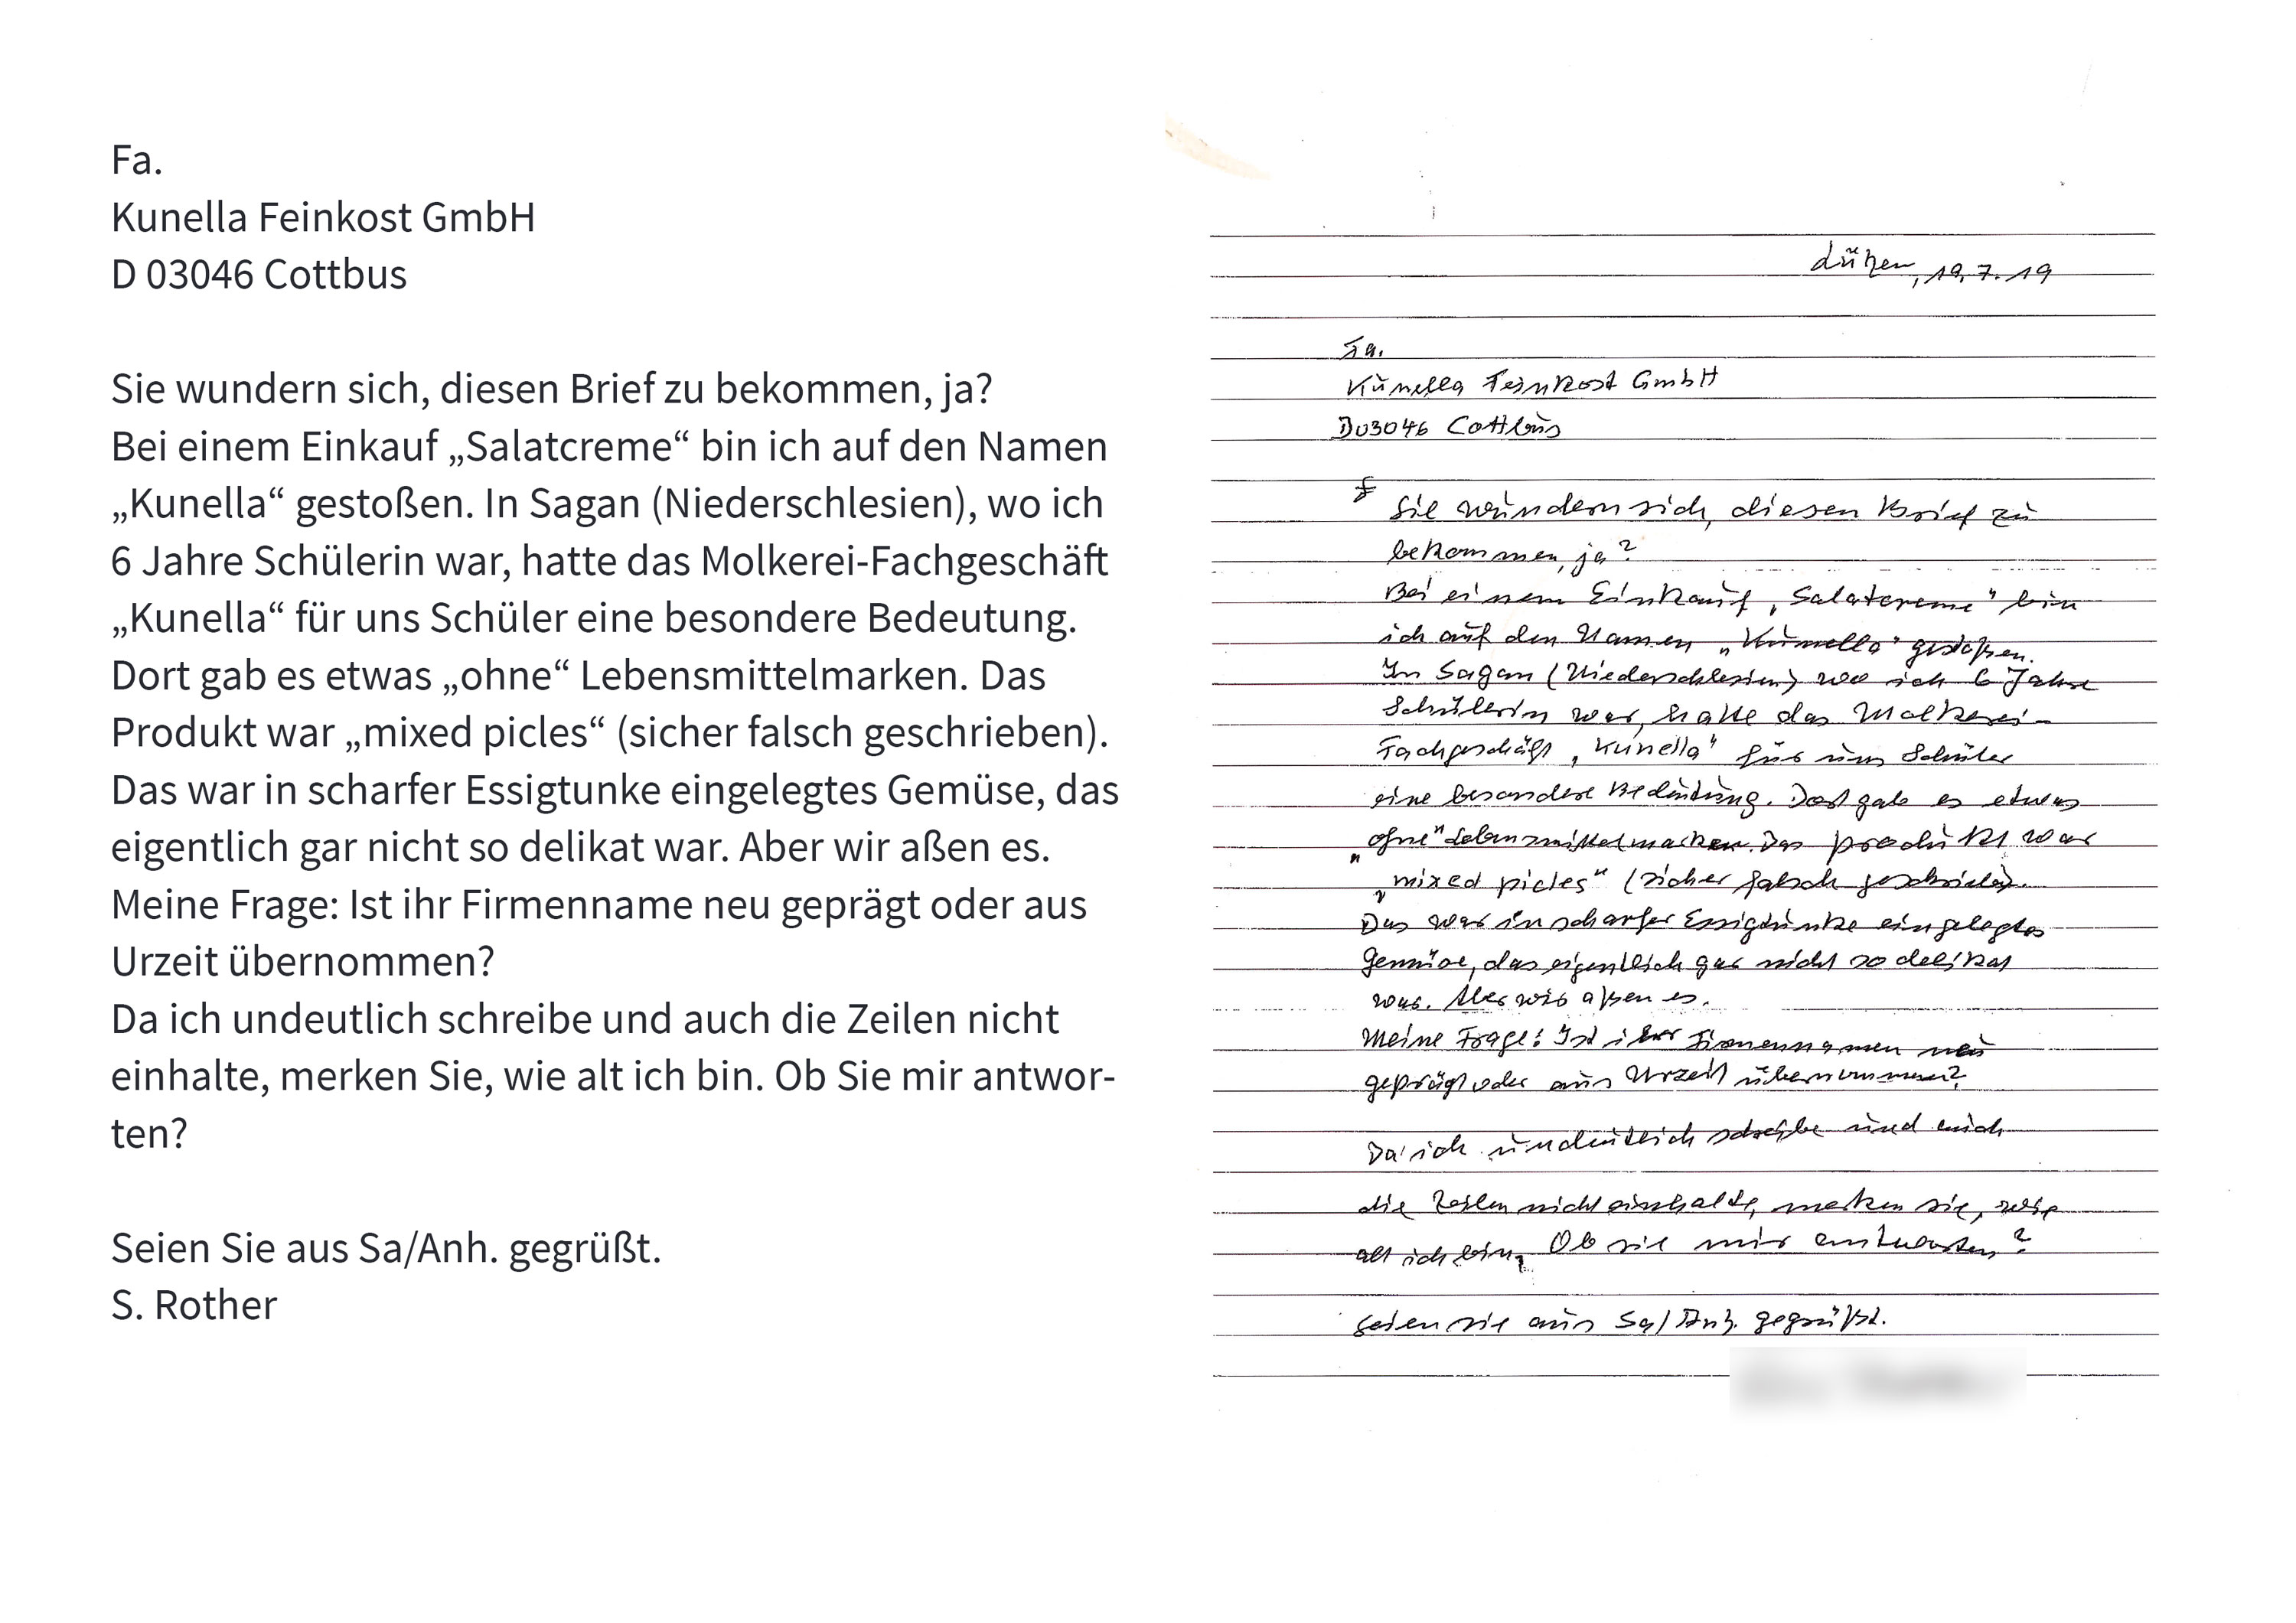 Fa.
Kunella Feinkost GmbH
D 03046 Cottbus
Sie wundern sich, diesen Brief zu bekommen, ja?
Bei einem Einkauf „Salatcreme“ bin ich auf den Namen
„Kunella“ gestoßen. In Sagan (Niederschlesien), wo ich
6 Jahre Schülerin war, hatte das Molkerei-Fachgeschäft
„Kunella“ für uns Schüler eine besondere Bedeutung.
Dort gab es etwas „ohne“ Lebensmittelmarken. Das
Produkt war „mixed picles“ (sicher falsch geschrieben).
Das war in scharfer Essigtunke eingelegtes Gemüse, das
eigentlich gar nicht so delikat war. Aber wir aßen es.
Meine Frage: Ist ihr Firmenname neu geprägt oder aus
Urzeit übernommen?
Da ich undeutlich schreibe und auch die Zeilen nicht
einhalte, merken Sie, wie alt ich bin. Ob Sie mir antwor-
ten?
Seien Sie aus Sa/Anh. gegrüßt.
S. Rother
Lützen, 19.7.19
Fa.
Kunella Feinkost GmbH
D03046 Cottbus
Sie wundern sich, diesen Brief zu
bekommen, ja?
Bei einem Einkauf „Salatcreme“ bin
ich auf den Namen „Kunella“ gestoßen.
In Sagan (Niederschlesien) wo ich 6 Jahre
Schülerin war, hatte das Molkerei-
Fachgeschäft „Kunella“ für uns Schüler
eine besondere Bedeutung. Dort gab es etwas
„ohne“ Lebensmittelmarken. Das Produkt war
„mixed picles“ (sicher falsch geschrieben).
Das war in scharfer Essigtunke eingelegtes
Gemüse, das eigentlich gar nicht so delikat
war. Aber wir aßen es.
Meine Frage: Ist ihr Firmennamen neu
geprägt oder aus Urzeit übernommen?
Da ich undeutlich schreibe und auch
die Zeilen nicht einhalte, merken sie, wie
alt ich bin. Ob sie mir antworten?
Seien sie aus Sa/Anh. gegrüßt.